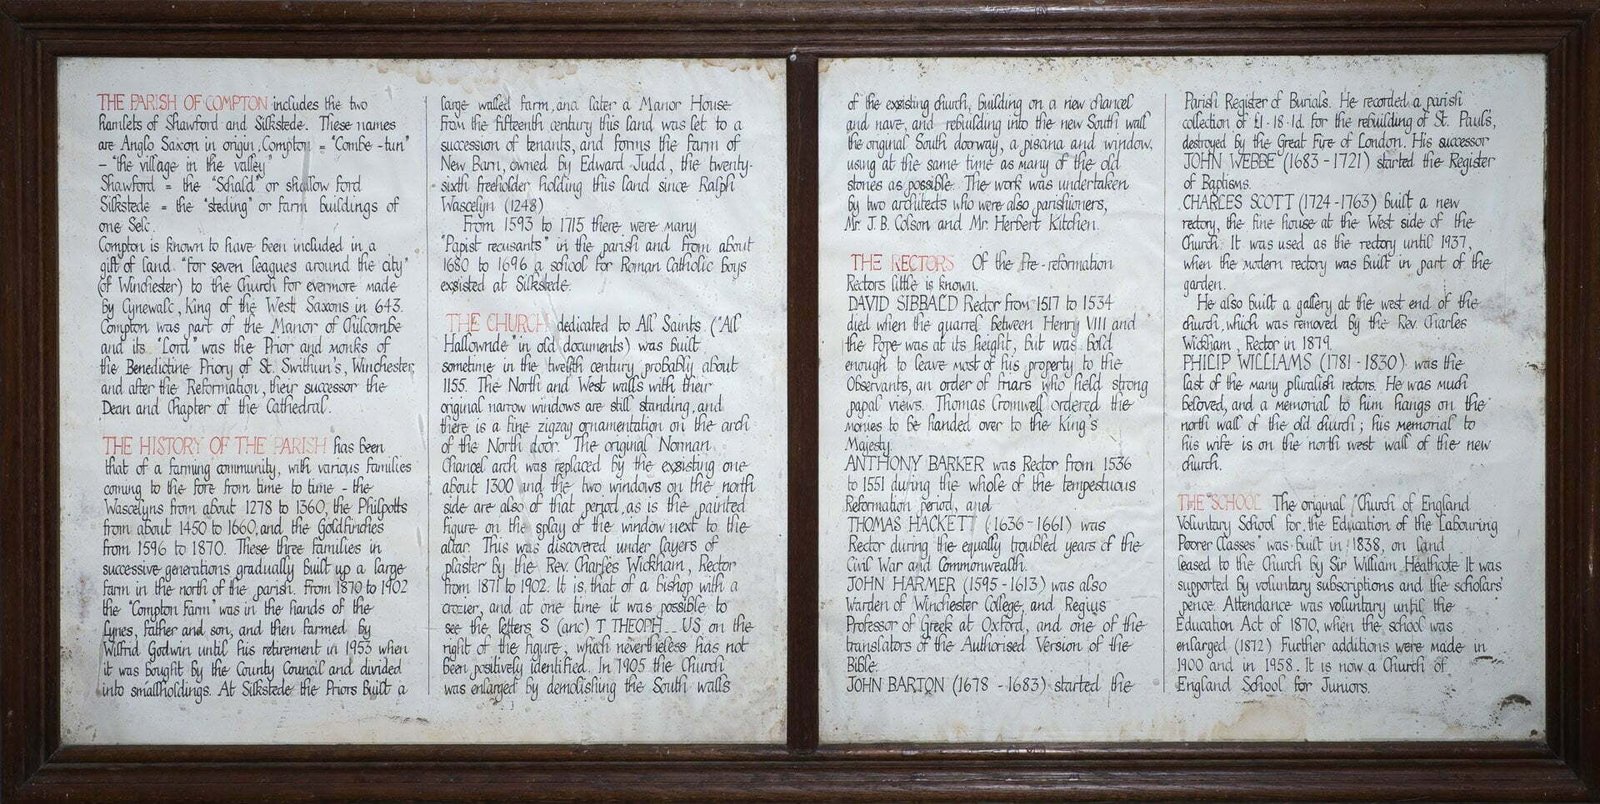 THE PARISH OF COMPTON includes the two
hamlets of Shawford and Silkstede. These names
are Anglo Saxon in origin, Compton = "Combe-tun"
– "the village in the valley"
Shawford = the "Schald" or shallow ford
Silkstede = the "steding" or farm buildings of
one Selc.
Compton is known to have been included in a
gift of land "for seven leagues around the city"
(of Winchester) to the Church for evermore made
by Cynewalc, King of the West Saxons in 643.
Compton was part of the Manor of Chilcombe
and its "Lord" was the Prior and monks of
the Benedictine Priory of St. Swithun's, Winchester,
and after the Reformation, their successor the
Dean and Chapter of the Cathedral.
THE HISTORY OF THE PARISH has been
that of a farming community, with various families
coming to the fore from time to time – the
Wascelyns from about 1278 to 1360, the Philpotts
from about 1450 to 1660, and the Goldfinches
from 1596 to 1870. These three families in
successive generations gradually built up a large
farm in the north of the parish. From 1870 to 1902
the "Compton Farm" was in the hands of the
Lynes, father and son, and then farmed by
Wilfrid Godwin until his retirement in 1953 when
it was bought by the County Council and divided
into smallholdings. At Silkstede the Priors built a
large walled farm, and later a Manor House
From the fifteenth century this land was let to a
succession of tenants, and forms the farm of
New Barn, owned by Edward Judd, the twenty-
sixth freeholder holding this land since Ralph
Wascelyn (1248)
From 1593 to 1715 there were many
"Papist recusants" in the parish and from about
1680 to 1696 a school for Roman Catholic boys
exsisted at Silkstede.
THE CHURCH dedicated to All Saints ("All
Hallownde" in old documents) was built
sometime in the twelfth century, probably about
1155. The North and West walls with their
original narrow windows are still standing, and
there is a fine zigzag ornamentation on the arch
of the North door. The original Norman
Chancel arch was replaced by the exsisting one
about 1300 and the two windows on the north
side are also of that period, as is the painted
figure on the splay of the window next to the
altar. This was discovered under layers of
plaster by the Rev. Charles Wickham, Rector
from 1871 to 1902. It is that of a bishop with a
crozier, and at one time it was possible to
see the letters S (anc) T THEOPH__US on the
right of the figure, which nevertheless has not
been positively identified. In 1905 the Church
was enlarged by demolishing the South walls
of the exsisting church, building on a new chancel
and nave, and rebuilding into the new South wall
the original South doorway, a piscina and window,
using at the same time as many of the old
stones as possible. The work was undertaken
by two architects who were also parishioners,
Mr. J. B. Colson and Mr. Herbert Kitchen.
THE RECTORS Of the Pre-reformation
Rectors little is known.
DAVID SIBBALD Rector from 1517 to 1534
died when the quarrel between Henry VIII and
the Pope was at its height, but was bold
enough to leave most of his property to the
Observants, an order of friars who held strong
papal views. Thomas Cromwell ordered the
monies to be handed over to the King's
Majesty.
ANTHONY BARKER was Rector from 1536
to 1551 during the whole of the tempestuous
Reformation period, and
THOMAS HACKETT (1636-1661) was
Rector during the equally troubled years of the
Civil War and Commonwealth.
JOHN HARMER (1595-1613) was also
Warden of Winchester College, and Regius
Professor of Greek at Oxford, and one of the
translators of the Authorised Version of the
Bible.
JOHN BARTON (1678-1683) started the
Parish Register of Burials. He recorded a parish
collection of £1·18·1d. for the rebuilding of St. Paul's,
destroyed by the Great Fire of London. His successor
JOHN WEBBE (1683-1721) started the Register
of Baptisms.
CHARLES SCOTT (1724-1763) built a new
rectory, the fine house at the West side of the
Church. It was used as the rectory until 1937,
when the modern rectory was built in part of the
garden.
He also built a gallery at the west end of the
church, which was removed by the Rev. Charles
Wickham, Rector in 1879.
PHILIP WILLIAMS (1781-1830) was the
last of the many pluralish rectors. He was much
beloved, and a memorial to him hangs on the
north wall of the old church; his memorial to
his wife is on the north west wall of the new
church.
THE SCHOOL The original "Church of England
Voluntary School for the Education of the Labouring
Poorer Classes" was built in 1838, on land
leased to the Church by Sir William Heathcote It was
supported by voluntary subscriptions and the scholars'
pence. Attendance was voluntary until the
Education Act of 1870, when the school was
enlarged (1872) Further additions were made in
1900 and in 1958. It is now a Church of
England School for Juniors.